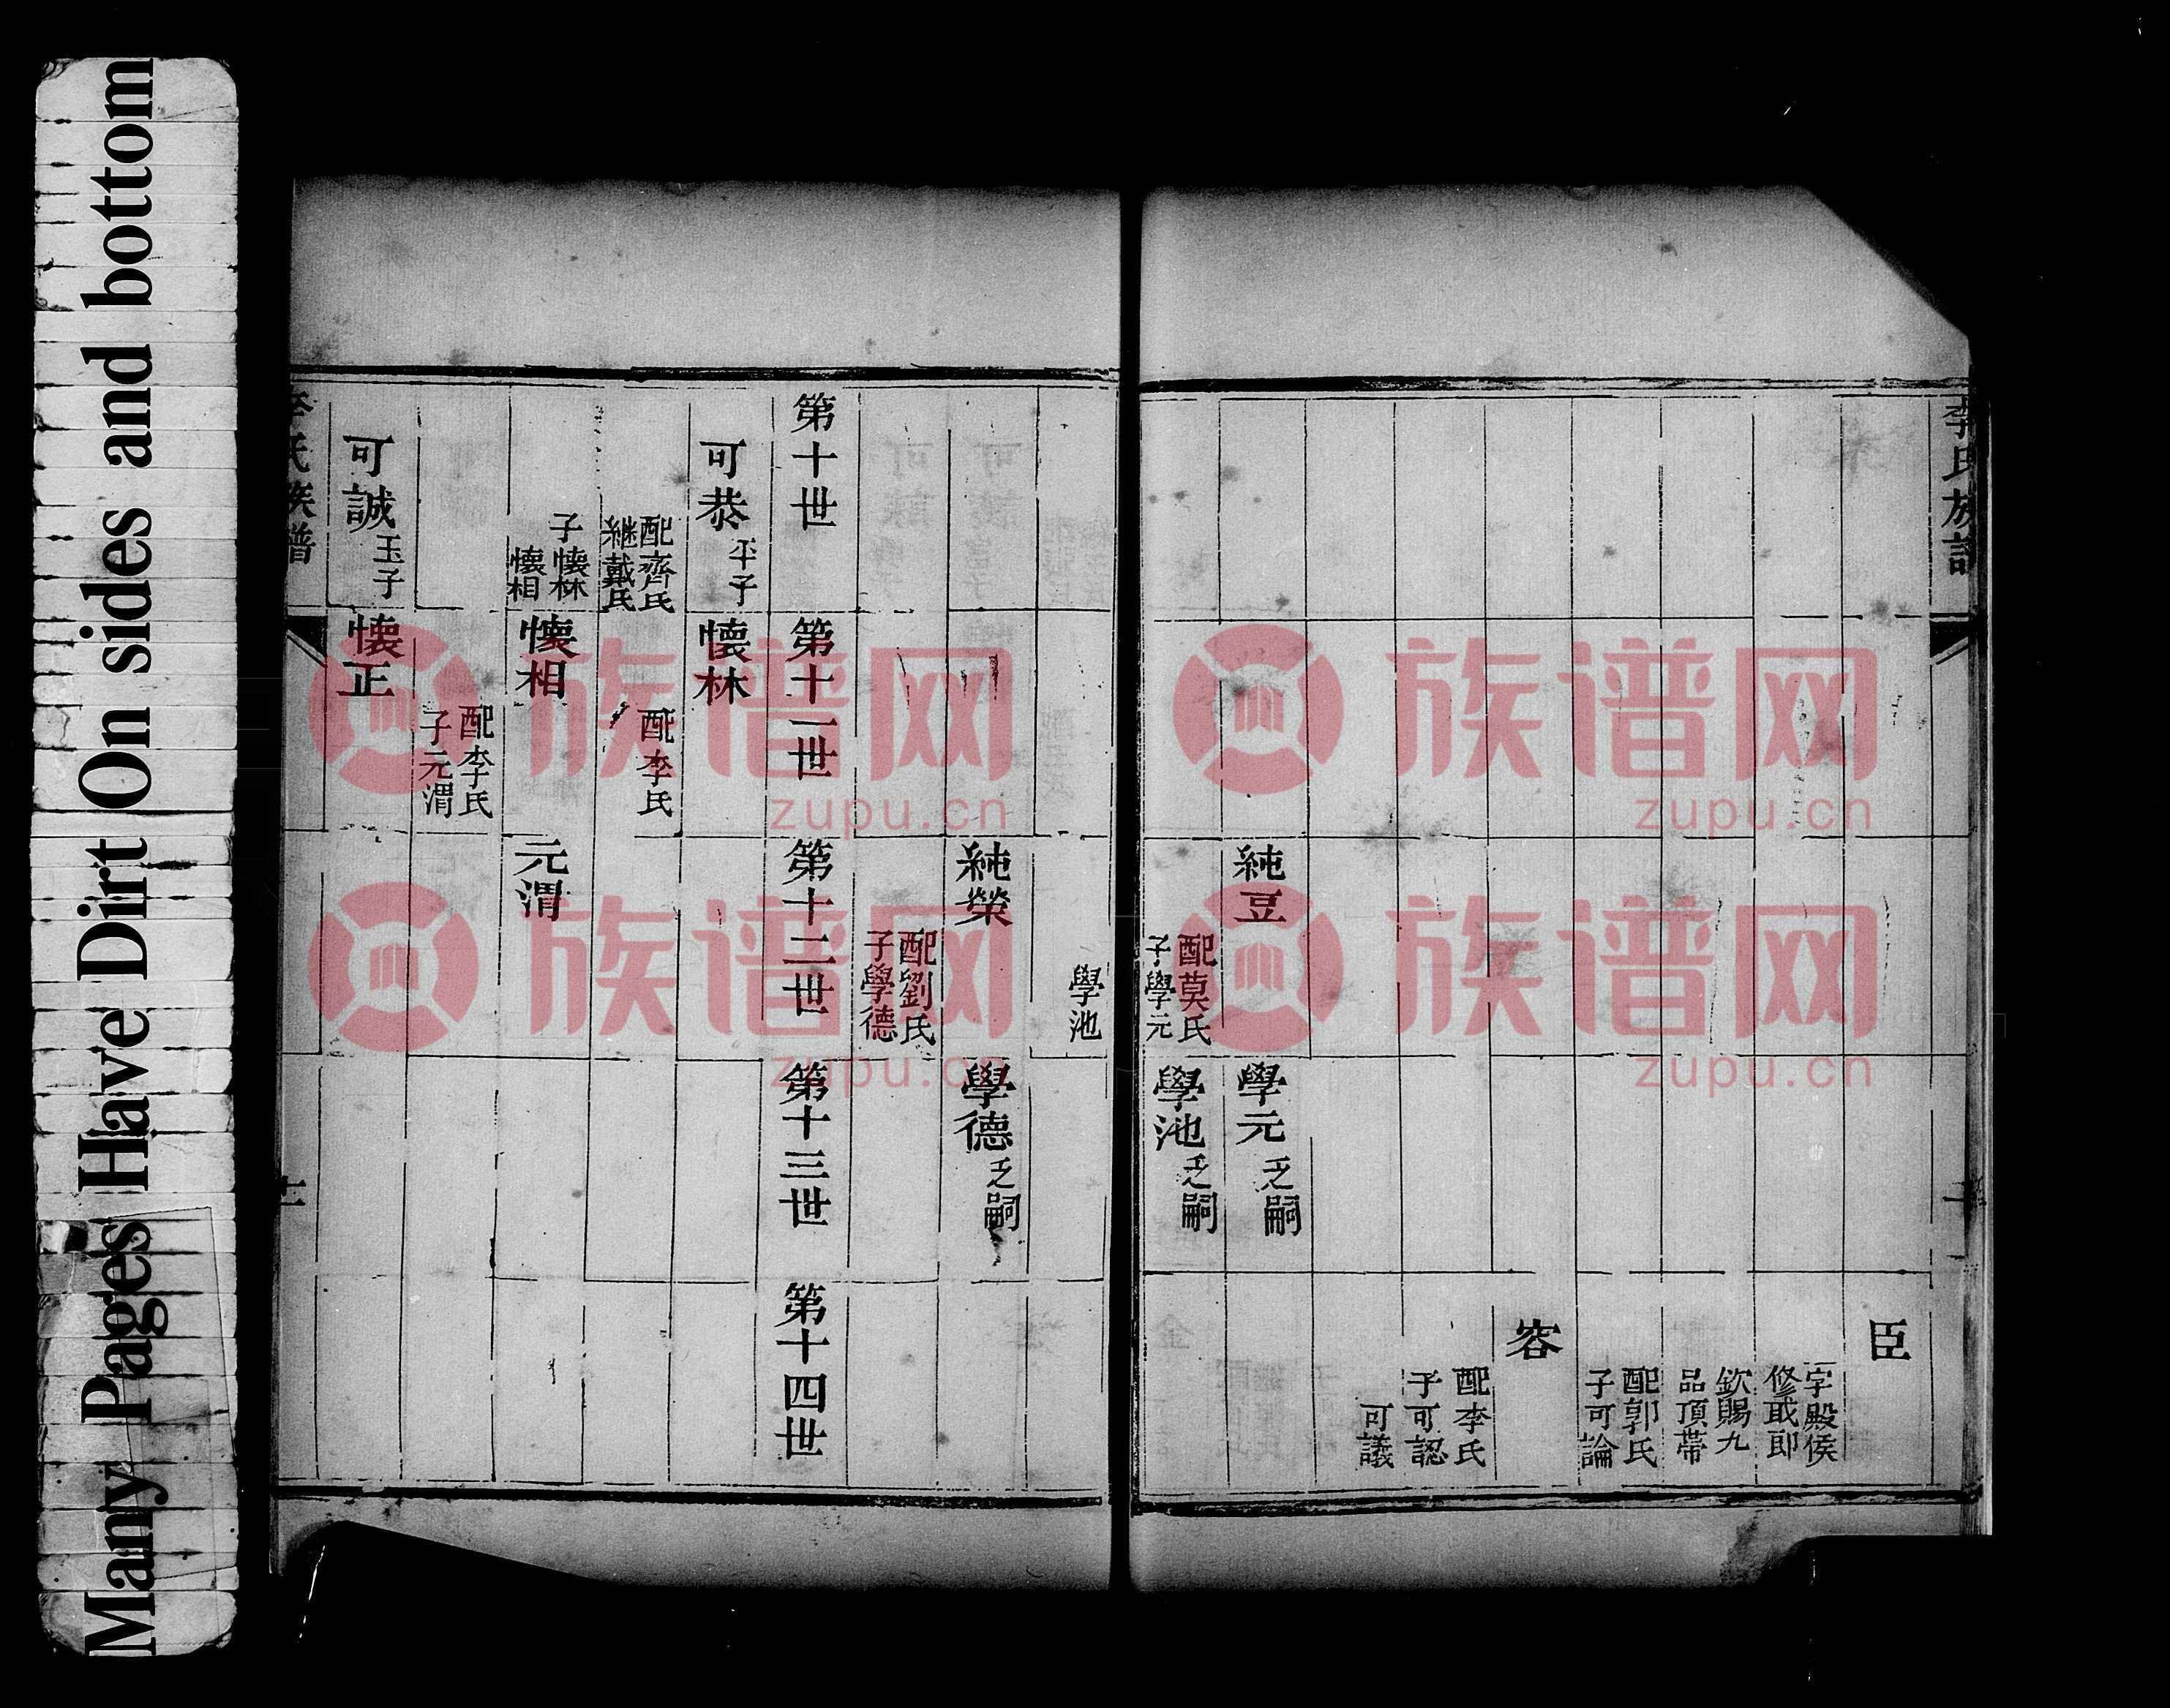 Many Pages Have Dirt On sides and bottom
李氏族譜
臣
字殿侯
修職郎
欽賜九
品頂帶
配郭氏
子可論
容
配李氏
子可認
可議
純豆
配莫氏
子學元
學池
學元
乏嗣
學池
乏嗣
純榮
配劉氏
子學德
學德
乏嗣
第十世
第十一世
第十二世
第十三世
第十四世
可恭
平子
配齊氏
継戴氏
子懷林
懷相
懷林
配李氏
懷相
配李氏
子元渭
元渭
可誠
玉子
懷正
李氏族譜
族谱网
zupu.cn
族谱网
zupu.cn
族谱网
zupu.cn
族谱网
zupu.cn